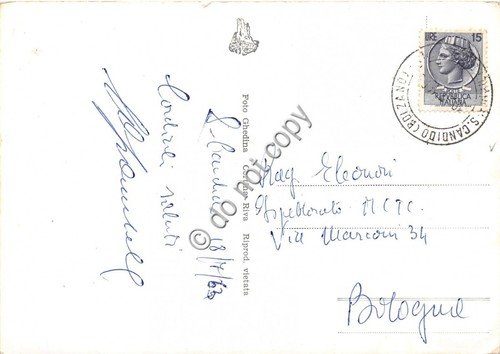 S. Candido 18/7/63
Cordiali saluti
Foto Ghedina Riva Riprod. vietata
LIRE 15
REPVBBLICA
ITALIANA
S. CANDIDO (BOLZANO)
Rag. Eleonori
Ispettorato M.C.T.C.
Via Marconi 34
Bologna
© do not copy